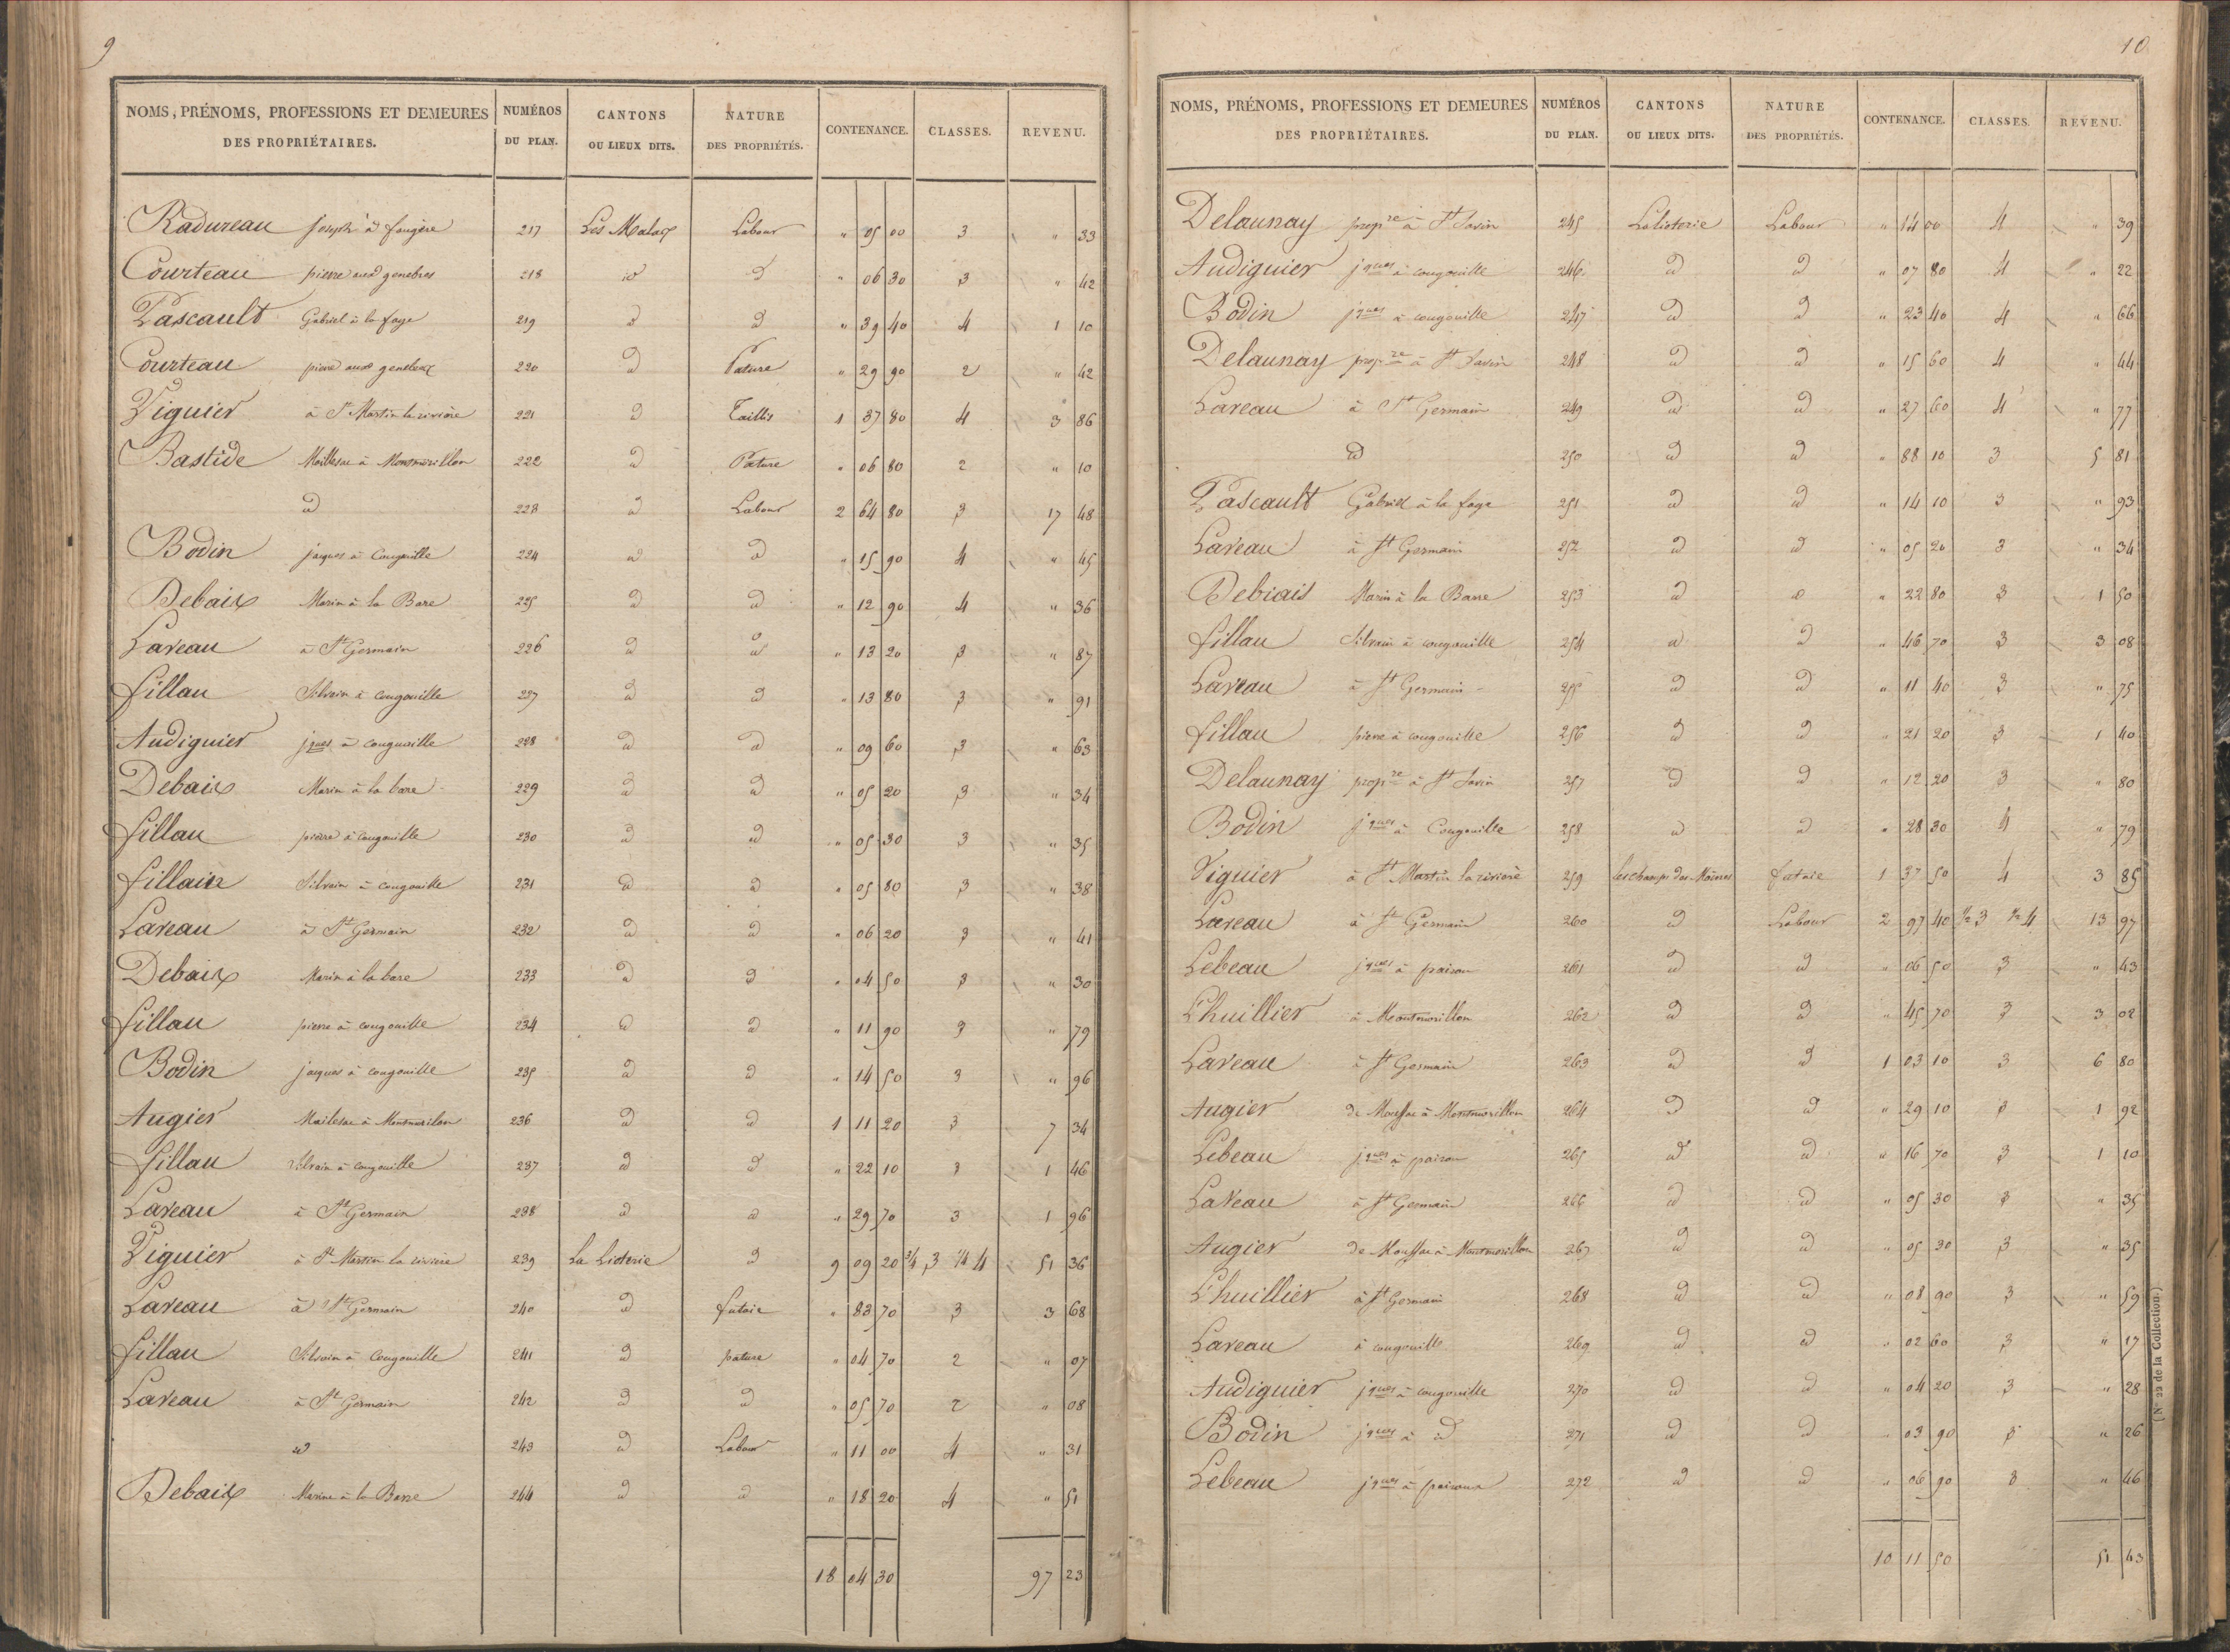 9
NOMS, PRÉNOMS, PROFESSIONS ET DEMEURES DES PROPRIÉTAIRES. NUMÉROS DU PLAN. CANTONS OU LIEUX DITS. NATURE DES PROPRIÉTÉS. CONTENANCE. CLASSES. REVENU.
Radureau joseph à fougère 217 Les Malax Labour " 05 00 3 " 33
Courteau pierre aux genebres 218 id d " 06 30 3 " 42
Pascault Gabriel à la faye 219 d d " 39 40 4 1 10
Courteau pierre aux 220 d Pature " 29 90 2 " 42
Viguier à St Martin la rivière 221 d Taillis 1 37 80 4 3 86
Bastide Maillesac à Montmorillon 222 d Pature " 06 80 2 " 10
id 223 id Labour 2 64 80 3 17 48
Bodin jaques à Cougouille 224 id id " 15 90 4 " 45
Debaix Marin à la Bare 225 id id " 12 90 4 " 36
Laveau à St Germain 226 id id " 13 20 3 " 87
fillau Silvain à cougouille 227 id id " 13 80 3 " 91
Audiguier jques à cougouille 228 id id " 09 60 3 " 63
Debaix Marin à la bare 229 id id " 05 20 3 " 34
fillau pierre à cougouille 230 id id " 05 30 3 " 35
fillain Silvain à cougouille 231 id id " 05 80 3 " 38
Laveau à St Germain 232 id id " 06 20 3 " 41
Debaix Marin à la bare 233 id id " 04 50 3 " 30
fillau pierre à cougouille 234 id id " 11 90 3 " 79
Bodin jaques à cougouille 235 id id " 14 50 3 " 96
Augier Mailesac à Montmorilon 236 id id 1 11 20 3 7 34
fillau Silvain à cougouille 237 id id " 22 10 3 1 46
Laveau à St Germain 238 id id " 29 70 3 1 96
Viguier à St Martin la rivière 239 La Lioterie id 9 09 20 3/4 3 1/4 4 51 36
Laveau à St Germain 240 id futaie " 83 70 3 3 68
fillau Silvain à Cougouille 241 id pature " 04 70 2 " 07
Laveau à St Germain 242 id id " 05 70 2 " 08
id 243 id Labour " 11 00 4 " 31
Debaix Marin à la Bare 244 id id " 18 20 4 " 51
18 04 30 97 23
10
NOMS, PRÉNOMS, PROFESSIONS ET DEMEURES DES PROPRIÉTAIRES. NUMÉROS DU PLAN. CANTONS OU LIEUX DITS. NATURE DES PROPRIÉTÉS. CONTENANCE. CLASSES. REVENU.
Delaunay propre à St Savin 245 Lalioterie Labour " 14 00 4 " 39
Audiguier jques à cougouille 246 id id " 07 80 4 " 22
Bodin jques à cougouille 247 id id " 23 40 4 " 66
Delaunay propre à St Savin 248 id id " 15 60 4 " 44
Laveau à St Germain 249 id id " 27 60 4 " 77
id 250 id id " 88 10 3 5 81
Pascault Gabriel à la faye 251 id id " 14 10 3 " 93
Laveau à St Germain 252 id id " 05 20 3 " 34
Debiais Marin à la Barre 253 id id " 22 80 3 1 50
fillau Silvain à cougouille 254 id id " 46 70 3 3 08
Laveau à St Germain 255 id id " 11 40 3 " 75
fillau pierre à cougouille 256 id id " 21 20 3 1 40
Delaunay propre à St Savin 257 id id " 12 20 3 " 80
Bodin jques à Cougouille 258 id id " 28 30 4 " 79
Viguier à St Martin la rivière 259 les champs des Moines futaie 1 37 50 4 3 85
Laveau à St Germain 260 id Labour 2 97 40 1/2 3 1/2 4 13 97
Lebeau jques à paizou 261 id id " 06 50 3 " 43
L'huillier à Montmorillon 262 id id " 45 70 3 3 02
Laveau à St Germain 263 id id 1 03 10 3 6 80
Augier de Moussac à Montmorillon 264 id id " 29 10 3 1 92
Lebeau jques à paizou 265 id id " 16 70 3 1 10
Laveau à St Germain 266 id id " 05 30 3 " 35
Augier de Moussac à Montmorillon 267 id id " 05 30 3 " 35
L'huillier à St Germain 268 id id " 08 90 3 " 59
Laveau à cougouille 269 id id " 02 60 3 " 17
Audiguier jques à cougouille 270 id id " 04 20 3 " 28
Bodin jques à id 271 id id " 03 90 3 " 26
Lebeau jques à 272 id id " 06 90 3 " 46
10 11 50 51 43
(N° 22 de la Collection.)